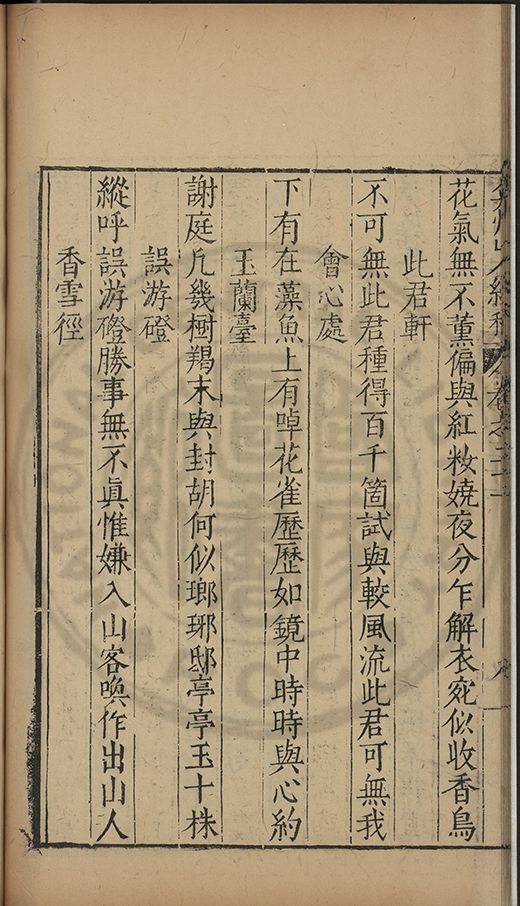 花氣無不薰偏與紅粉嬈夜分乍解衣宛似收香鳥
此君軒
不可無此君種得百千箇試與較風流此君可無我
會心處
下有在藻魚上有啅花雀歷歷如鏡中時時與心約
玉蘭臺
謝庭凡幾樹羯末與封胡何似瑯琊邸亭亭玉十株
誤游磴
縱呼誤游磴勝事無不眞惟嫌入山客喚作出山人
香雪徑